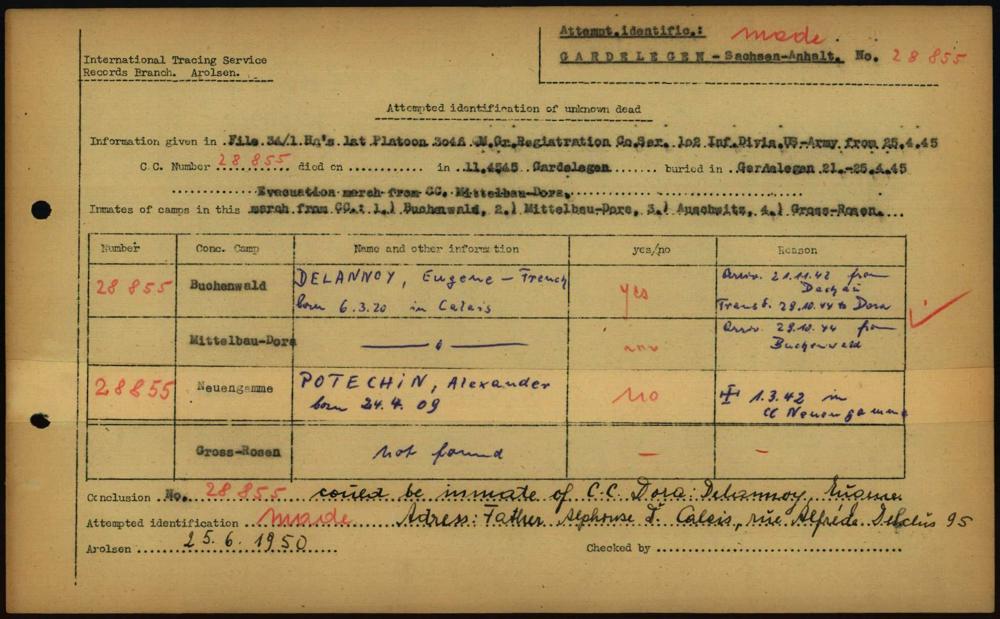 Attempt.identific.: made
GARDELEGEN - Sachsen-Anhalt. No. 28 855
International Tracing Service
Records Branch. Arolsen.
Attempted identification of unknown dead
Information given in File 34/1 Hq's 1st Platoon 3046 QM.Gr.Registration Co.Ser. 102 Inf.Divis.US-Army from 25.4.45
C.C. Number 28 855 died on in 11.4.45 Gardelegen buried in Gardelegen 21.-25.4.45
Evacuation march from CC. Mittelbau-Dora.
Inmates of camps in this march from CC.: 1.) Buchenwald, 2.) Mittelbau-Dora, 3.) Auschwitz, 4.) Gross-Rosen.
Number Conc. Camp Name and other information yes/no Reason
28 855 Buchenwald DELANNOY, Eugene - French yes Arriv. 21.11.42 from Dachau
born 6.3.20 in Calais Transf. 29.10.44 to Dora
Mittelbau-Dora Arriv. 29.10.44 from Buchenwald
28855 Neuengamme POTECHIN, Alexander no 1.3.42 in
born 24.4.09 CC Neuengamme
Gross-Rosen not found — —
Conclusion No. 28 855 could be inmate of C.C. Dora: Delannoy, Eugene
Attempted identification made Adress: Father Alphonse D. Calais, rue Alfréde 95
Arolsen 25.6.1950 Checked by